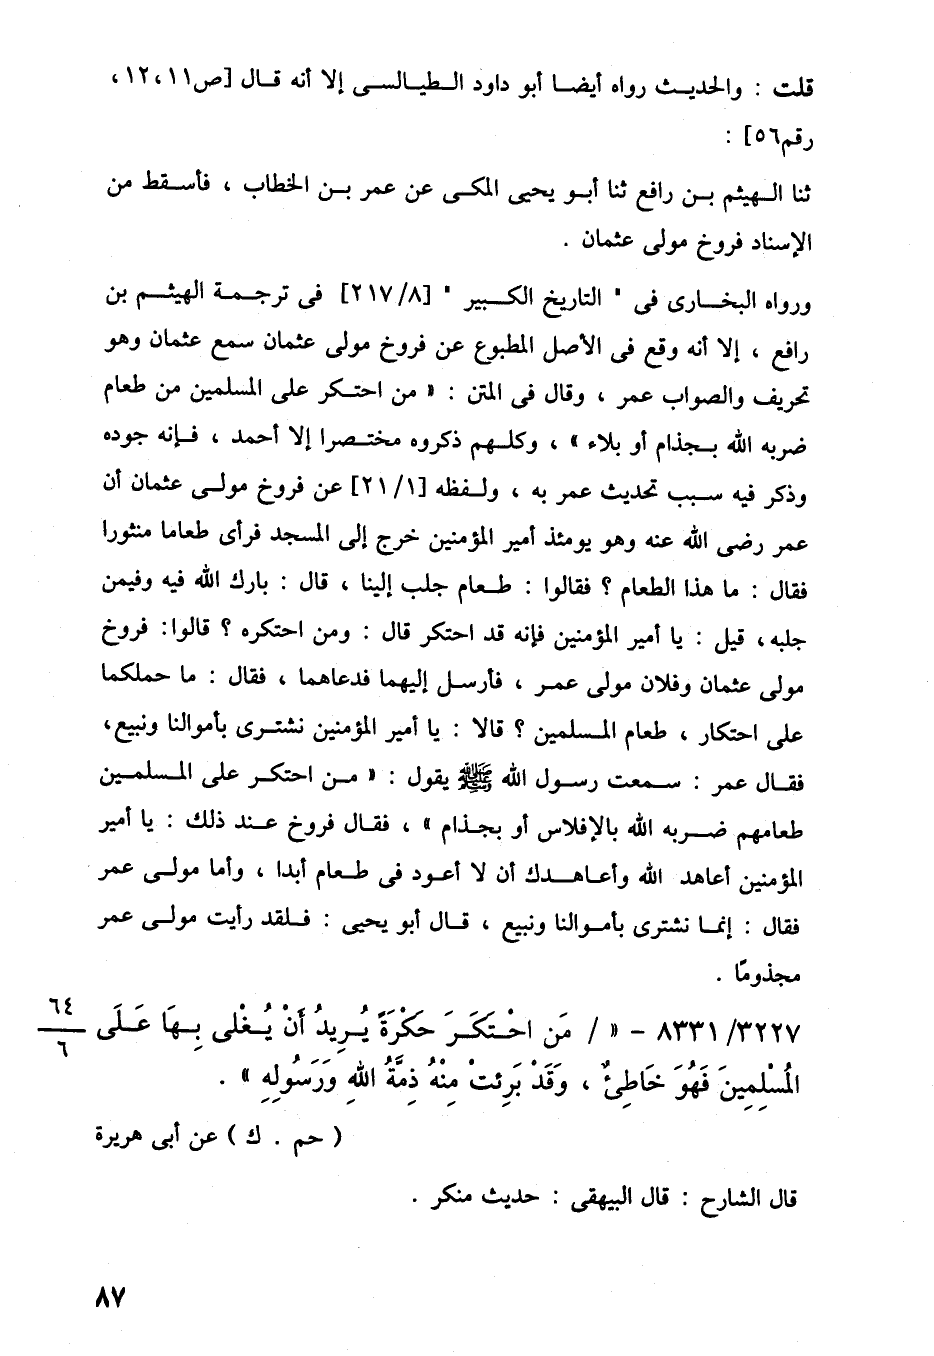 قلت : والحديث رواه أيضا أبو داود الطيالسى إلا أنه قال [ص١١، ١٢،
رقم٥٦] :
ثنا الهيثم بن رافع ثنا أبو يحيى المكى عن عمر بن الخطاب ، فأسقط من
الإسناد فروخ مولى عثمان .
ورواه البخارى فى " التاريخ الكبير " [٨/ ٢١٧] فى ترجمة الهيثم بن
رافع ، إلا أنه وقع فى الأصل المطبوع عن فروخ مولى عثمان سمع عثمان وهو
تحريف والصواب عمر ، وقال فى المتن : « من احتكر على المسلمين من طعام
ضربه الله بجذام أو بلاء » ، وكلهم ذكروه مختصرا إلا أحمد ، فإنه جوده
وذكر فيه سبب تحديث عمر به ، ولفظه [١/ ٢١] عن فروخ مولى عثمان أن
عمر رضى الله عنه وهو يومئذ أمير المؤمنين خرج إلى المسجد فرأى طعاما منثورا
فقال : ما هذا الطعام ؟ فقالوا : طعام جلب إلينا ، قال : بارك الله فيه وفيمن
جلبه، قيل : يا أمير المؤمنين فإنه قد احتكر قال : ومن احتكره ؟ قالوا: فروخ
مولى عثمان وفلان مولى عمر ، فأرسل إليهما فدعاهما ، فقال : ما حملكما
على احتكار ، طعام المسلمين ؟ قالا : يا أمير المؤمنين نشترى بأموالنا ونبيع،
فقال عمر : سمعت رسول الله ﷺ يقول : « من احتكر على المسلمين
طعامهم ضربه الله بالإفلاس أو بجذام » ، فقال فروخ عند ذلك : يا أمير
المؤمنين أعاهد الله وأعاهدك أن لا أعود فى طعام أبدا ، وأما مولى عمر
فقال : إنما نشترى بأموالنا ونبيع ، قال أبو يحيى : فلقد رأيت مولى عمر
مجذومًا .
٣٢٢٧/ ٨٣٣١ – « / مَن احْتَكَرَ حَكْرَةً يُرِيدُ أَنْ يُغْلى بِهَا عَلَى
٦٤
٦
المُسْلِمِينَ فَهُوَ خَاطِئٌ ، وَقَدْ بَرِئتْ مِنْهُ ذِمَّةُ اللهِ وَرَسُولِهِ » .
( حم . ك ) عن أبى هريرة
قال الشارح : قال البيهقى : حديث منكر .
٨٧